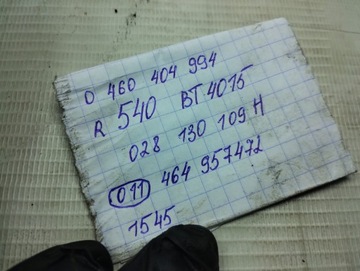 0 460 404 994
R 540 BT 4015
028 130 109 H
011 464 957472
1545